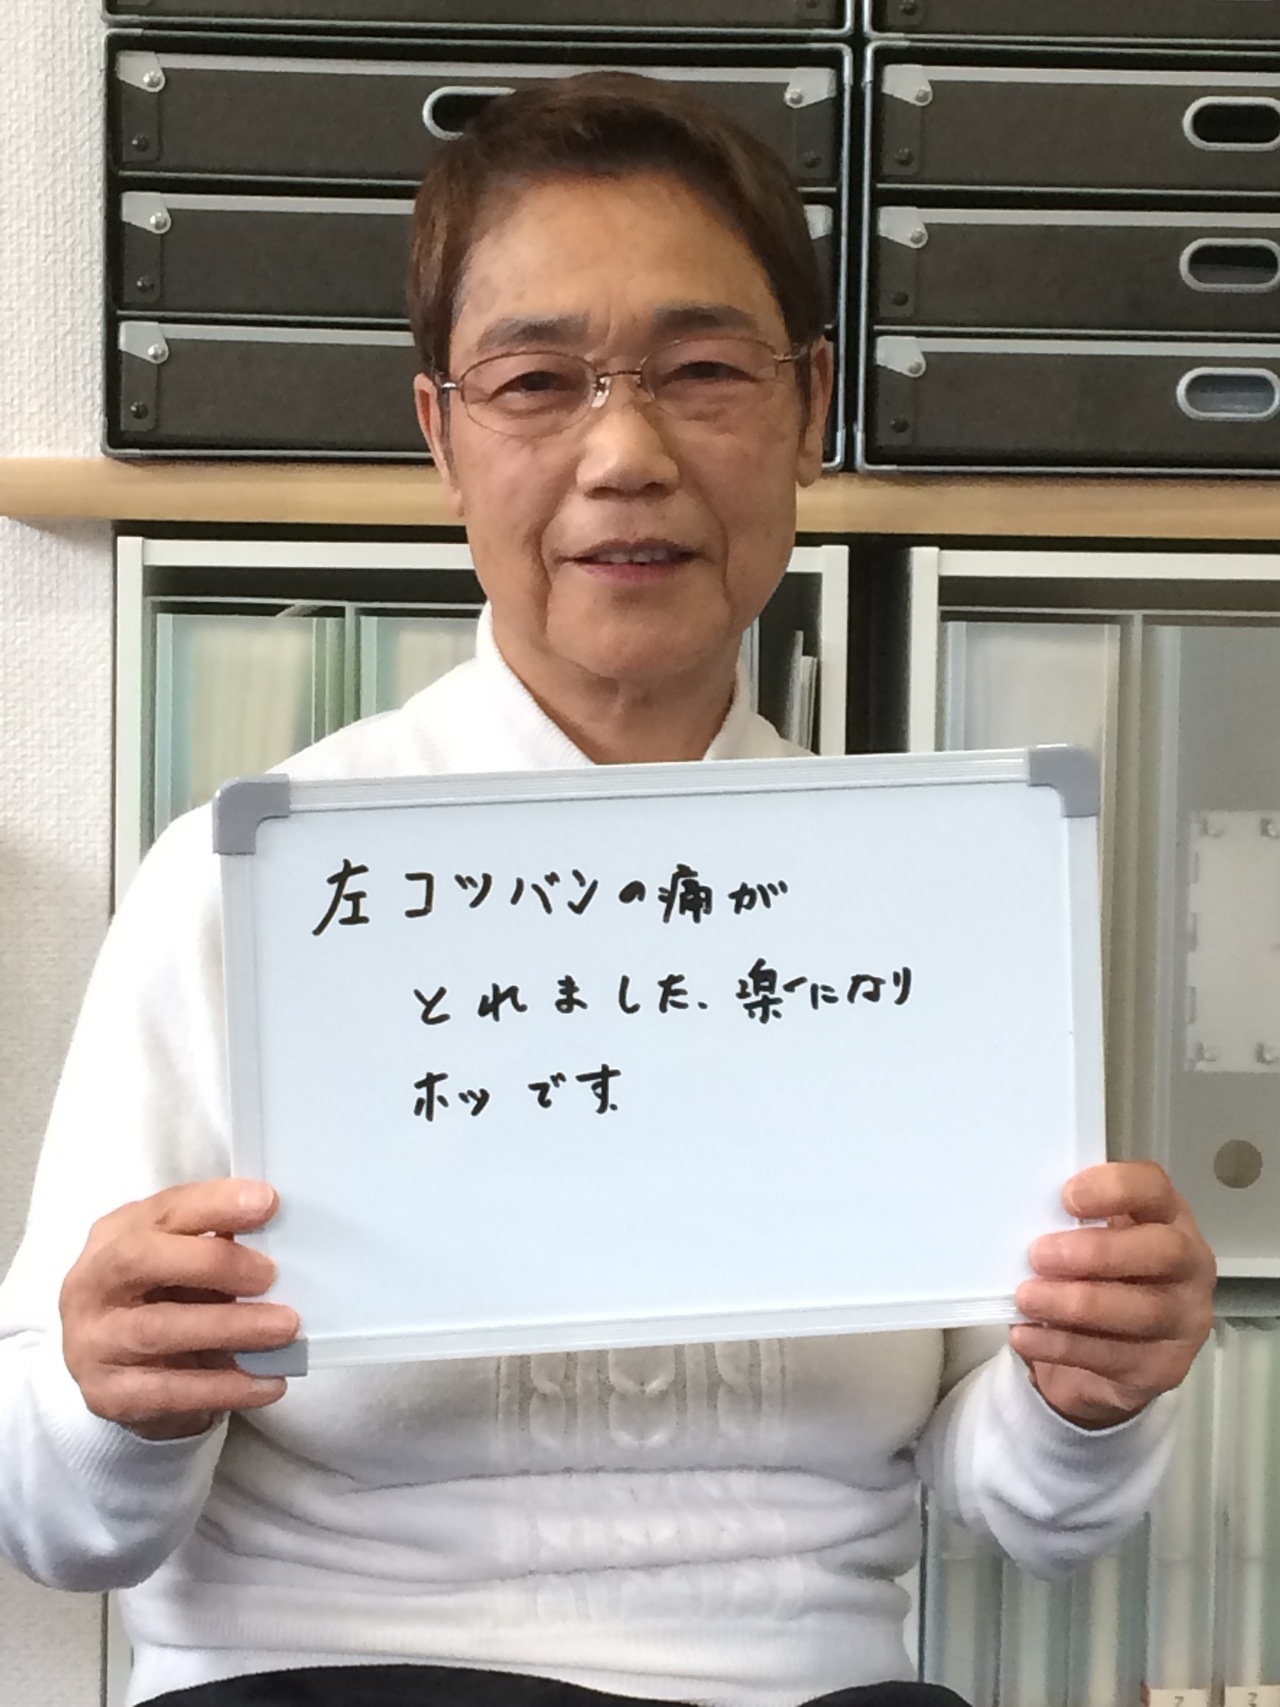 左コツバンの痛が
とれました、楽になり
ホッです